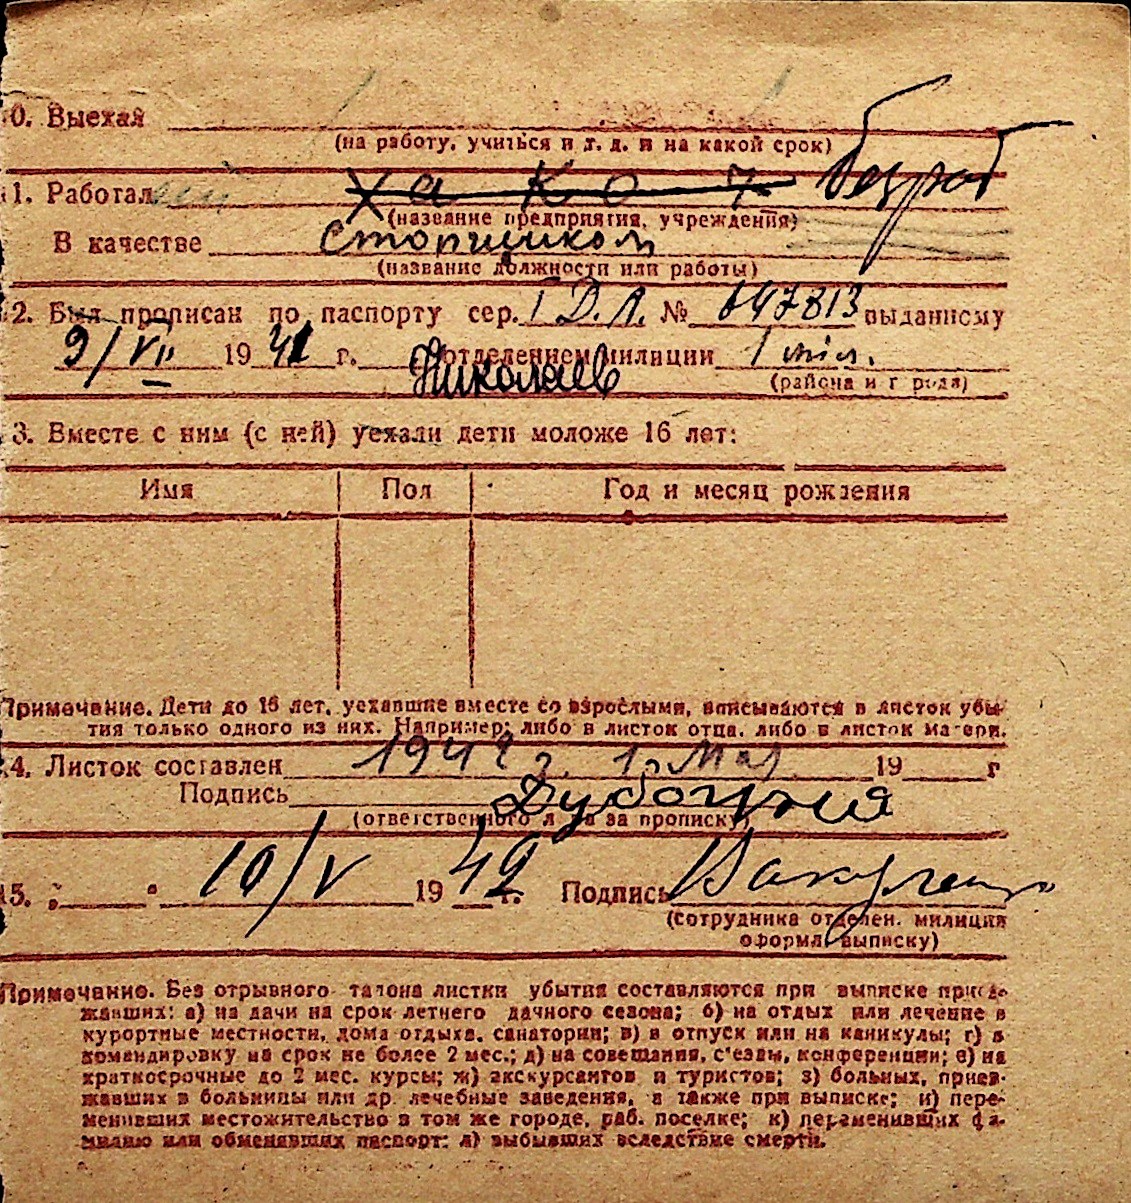 0. Выехал
(на работу, учиться и т. д. и на какой срок)
1. Работал Х а К О 7 безраб
(название предприятия, учреждения)
В качестве сторщиком
(название должности или работы)
2. Был прописан по паспорту сер. I Д.Л. № 647813 выданному
9/VII 1941 г. отделением милиции 1 мил.
Николаев
(района и города)
3. Вместе с ним (с ней) уехали дети моложе 16 лет:
Имя Пол Год и месяц рождения
Примечание. Дети до 16 лет, уехавшие вместе со взрослыми, вписываются в листок убы-
тия только одного из них. Например: либо в листок отца, либо в листок матери.
4. Листок составлен 1942 г. 1 Мая 19 г
Подпись
(ответственного л за прописку)
15. " " 10/V 1942 г. Подпись Вакуленко
(сотрудника отделен. милиции
оформл. выписку)
Примечание. Без отрывного талона листки убытия составляются при выписке приез-
жавших: а) на дачи на срок летнего дачного сезона; б) на отдых или лечение в
курортные местности, дома отдыха, санатории; в) в отпуск или на каникулы; г) в
командировку на срок не более 2 мес.; д) на совещания, с'езды, конференции; е) на
краткосрочные до 2 мес. курсы; ж) экскурсантов и туристов; з) больных, приез-
жавших в больницы или др. лечебные заведения, а также при выписке; и) пере-
менивших местожительство в том же городе, раб. поселке; к) переменивших фа-
милию или обменявших паспорт; л) выбывших вследствие смерти.